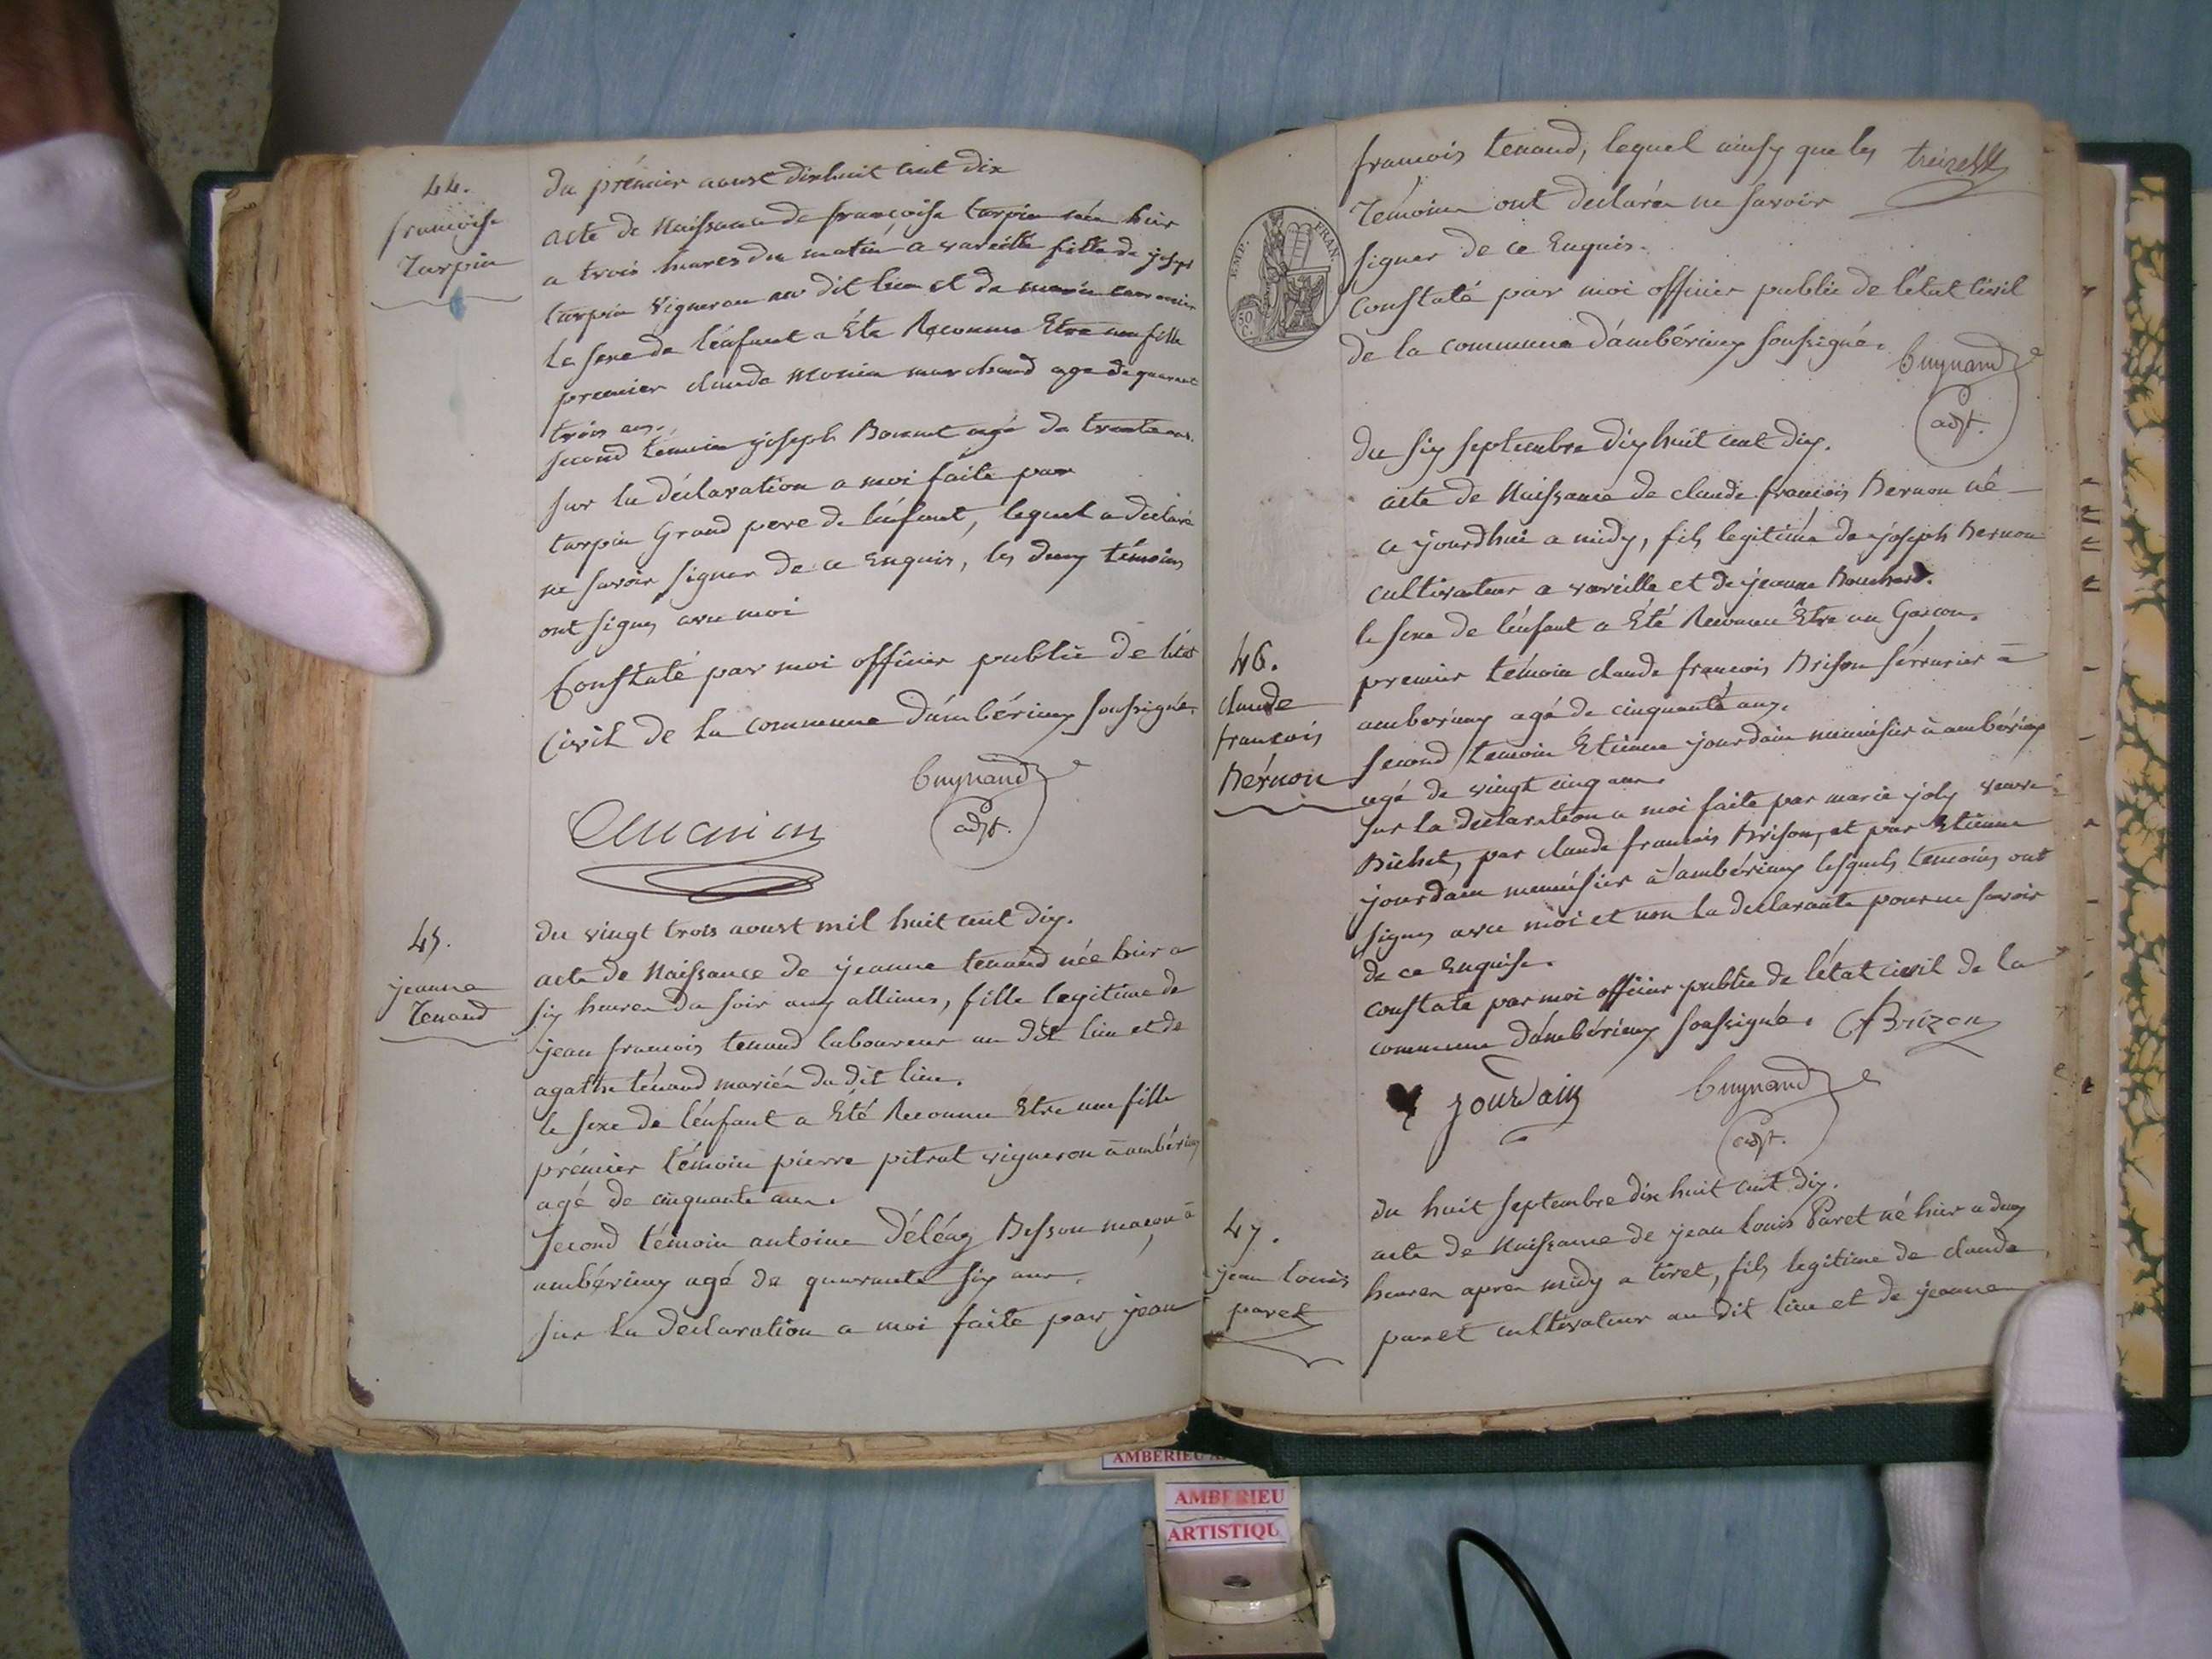 44.
francoise
Turpin
du prémier aoust dixhuit cent dix
acte de Naissance de françoise turpin née hier
a trois heures du matin a vareille fille de josep
turpin vigneron au dit lieu et de marie
le sexe de lénfant a Été Reconnu Etre une fille
premier claude monin marchand age de quarant
trois ans.
second témoin joseph Bonnet agé de trente ans.
sur la déclaration a moi faite par
turpin Grand pere de lénfant, lequel a declaré
ne savoir signer de ce Enquis, les deux témoins
ont signes avec moi
Constaté par moi officier public de létat
Civil de la commune dámbérieux soussigné.
Guynand
adjt.
45.
jeanne
Tenand
du vingt trois aoust mil huit cent dix.
acte de Naissance de jeanne tenand née hier a
six heures du soir aux allimes, fille legitime de
jean francois tenand laboureur au dit lieu et de
agathe ténand mariés du dit lieu.
le sexe de lénfant a Été Reconnu Etre une fille
prémier témoin pierre pitrat vigneron à ambérieux
agé de cinquante ans.
second témoin antoine Déléaz Besson maçon à
ambérieux agé de quarante six ans.
sur la declaration a moi faite par jean
francois tenand, lequel ainsy que les
treize
Témoins ont declarés ne savoir
signer de ce Enquis.
EMP. FRAN.
50 C.
constaté par moi officier public de létat civil
de la commune dámbérieux soussigné.
Guynand
adjt.
46.
claude
francois
Bérnon
du six septembre dixhuit cent dix.
acte de Naissance de claude francois Bernon né
ce jourdhui a midy, fils legitime de joseph Bernon
cultivateur a vareille et de jeanne Bouchard.
le sexe de lénfant a Été Reconnu Etre un Garcon.
premier témoin claude francois Brison sérrurier à
amberieux agé de cinquante ans.
second temoin Étienne jourdain menuisier à ambérieux
agé de vingt cinq ans.
sur la declaration a moi faite par marie joly veuve
Bichet, par claude francois Brison, et par Etienne
jourdain menuisier à ambérieux lesquels temoins ont
signes avec moi et non la declarante pour ne savoir
de ce Enquise.
constate par moi officier public de létat civil de la
commune dámbérieux soussigné.
Brizon
jourdain
Guynand
adjt.
47.
jean louis
paret
du huit septembre dix huit cent dix.
acte de Naissance de jean louis Paret né hier a deux
heures apres midy a tiret, fils legitime de claude
paret cultivateur au dit lieu et de jeanne
AMBERIEU
AMBERIEU
ARTISTIQU